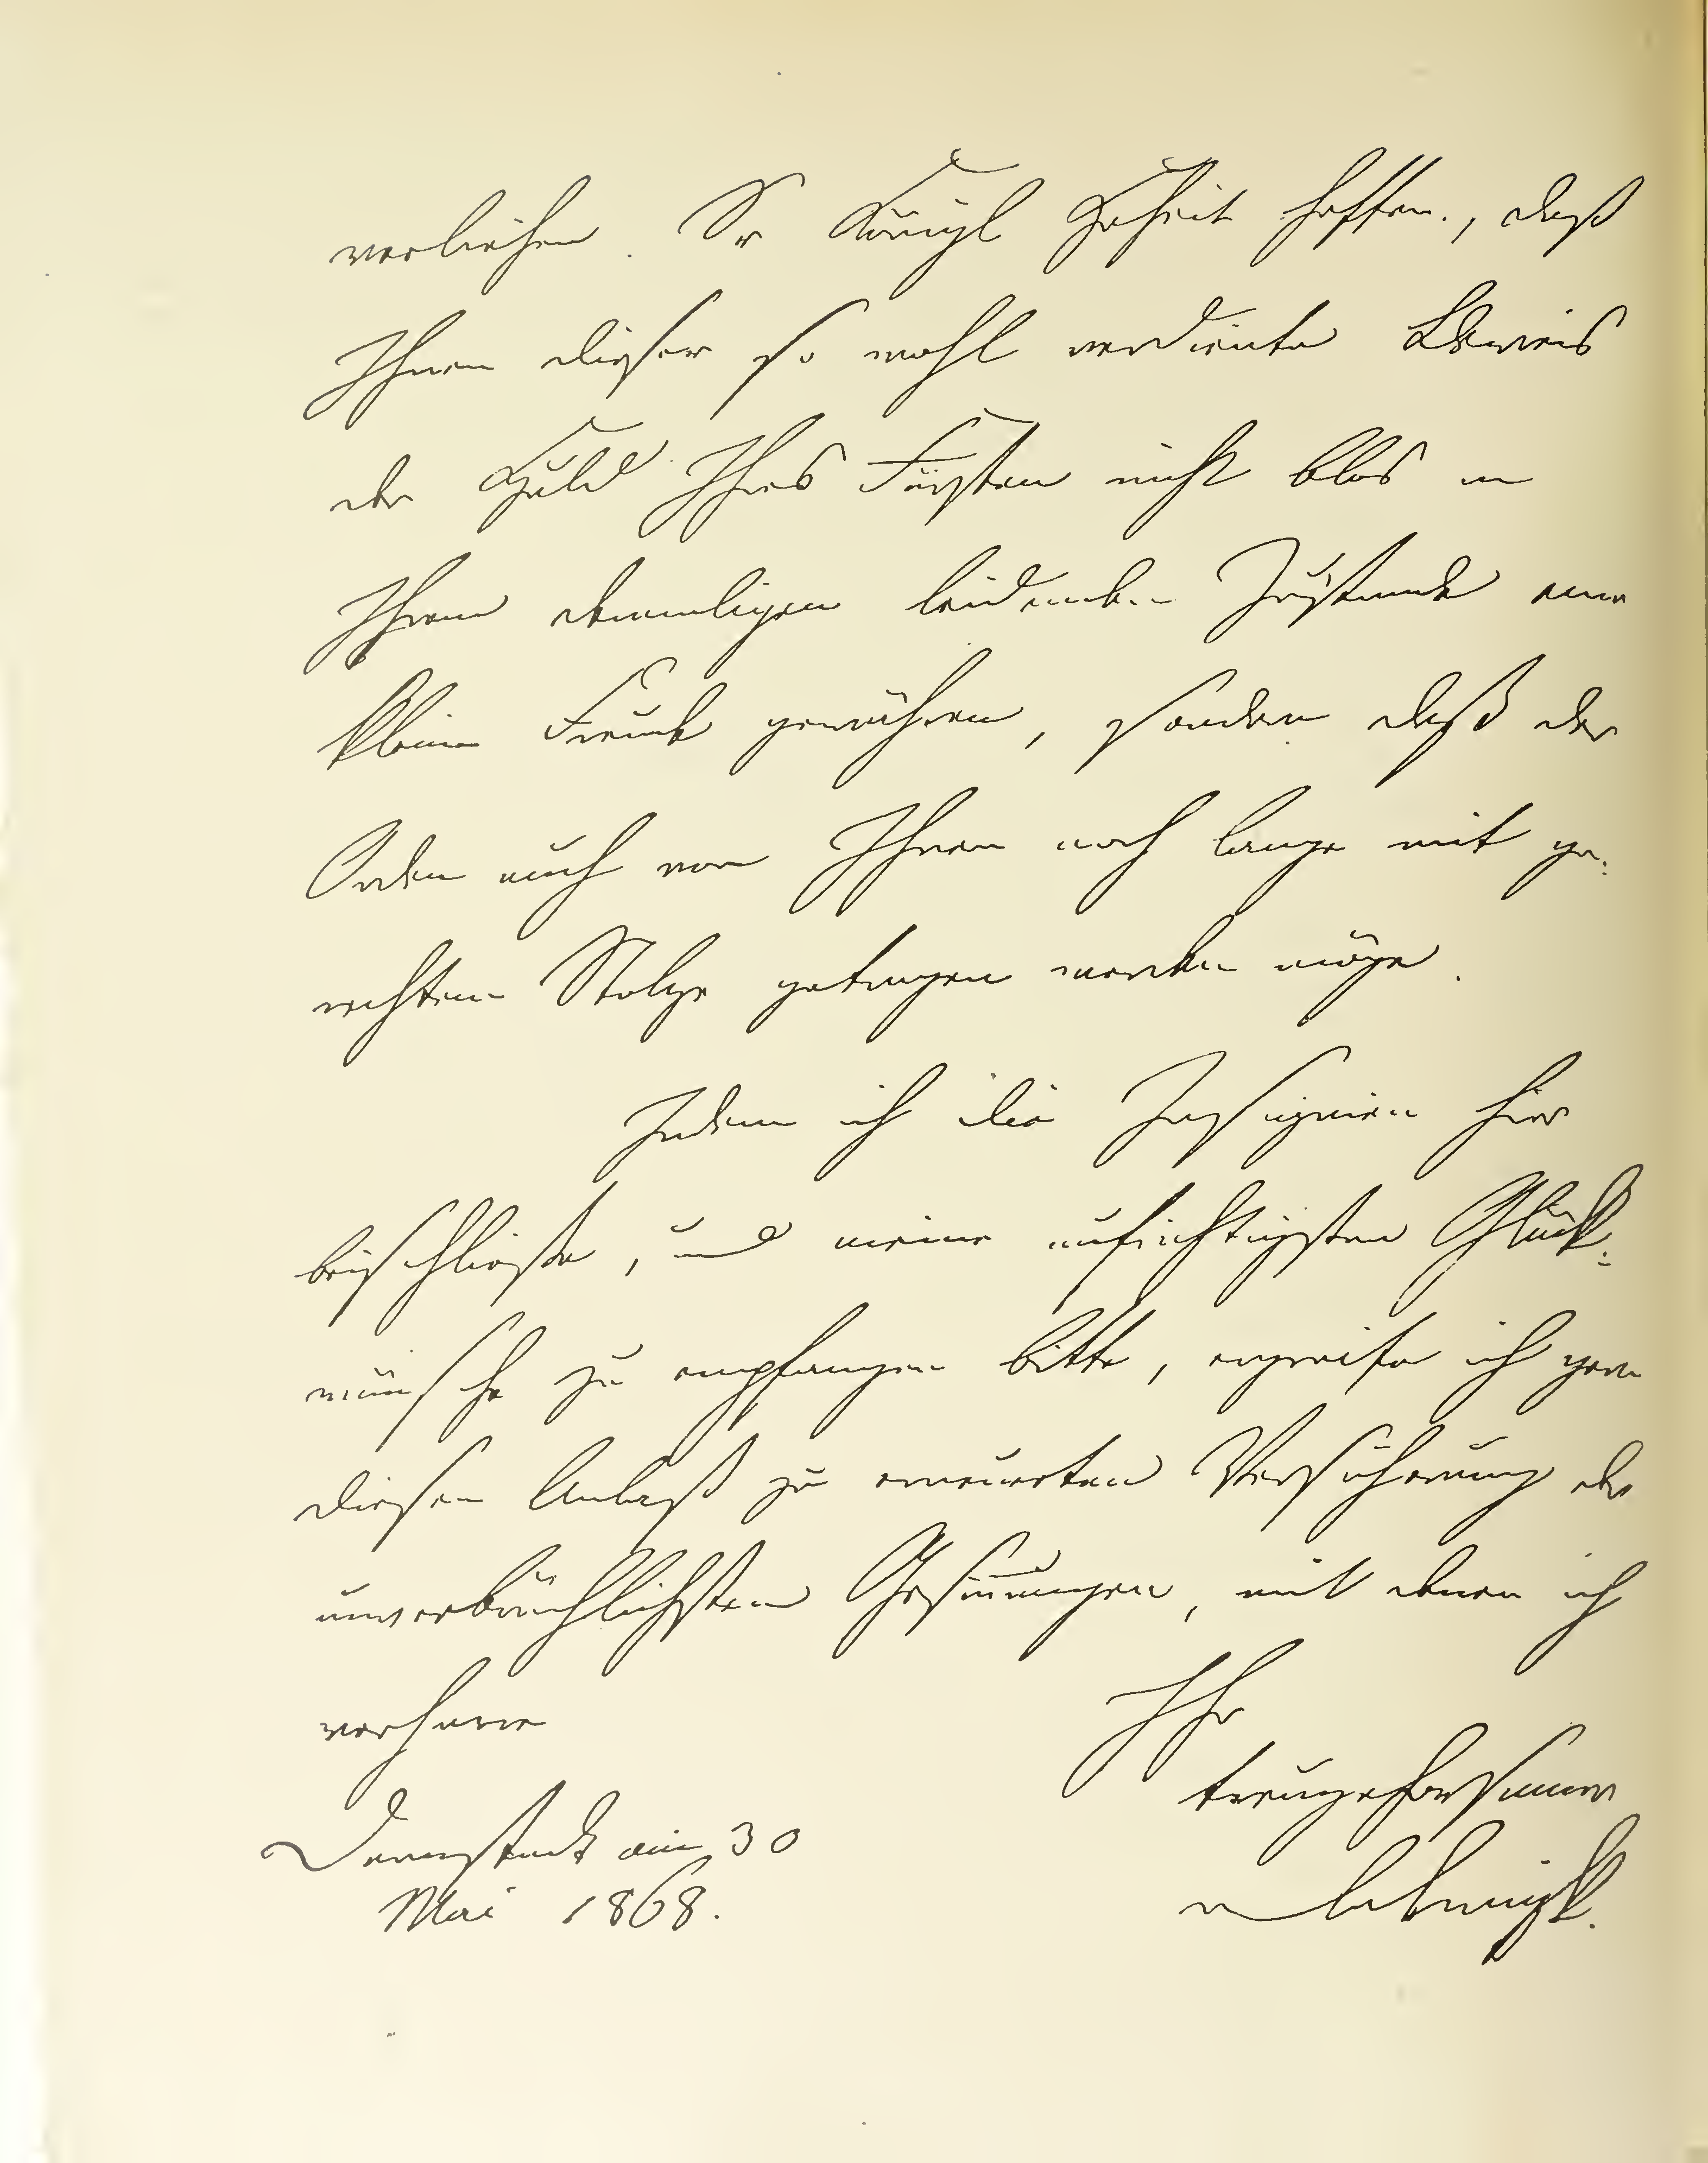 verliehen. Sr Königl Hoheit hoffen., daß
Ihnen dieser so wohl verdiente Beweis
der Huld Ihres Fürsten nicht blos in
Ihrem dermaligen leidenden Zustande eine
kleine Freude gewähren, sondern daß der
Orden auch von Ihnen noch lange mit ge:
rechtem Stolze getragen werden möge.
Indem ich die Insignien hier
beischließe, und meine aufrichtigsten Glück:
wünsche zu empfangen bitte, ergreife ich gern
diesen Anlaß zu erneuerten Versicherung der
unverbrüchlichsten Gesinnungen, mit denen ich
verharre
Ihr
treugehorsamer
Darmstadt am 30
Mai 1868.
v